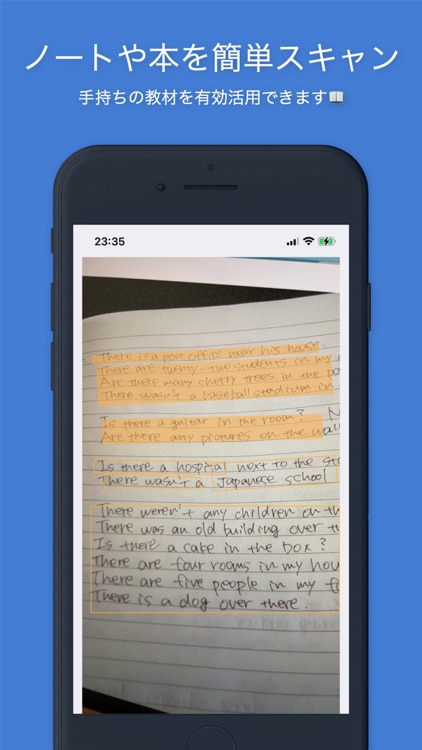 ノートや本を簡単スキャン
手持ちの教材を有効活用できます📖
23:35
There is a post office near his house.
There are twenty-two students in my
Are there many cherry trees in the
There wasn't a baseball stadium in
Is there a guitar in the room?
Are there any pictures on the wall
Is there a hospital next to the
There wasn't a Japanese school
There weren't any children on
There was an old building over
Is there a cake in the box?
There are four rooms in my hou
There are five people in my f
There is a dog over there.